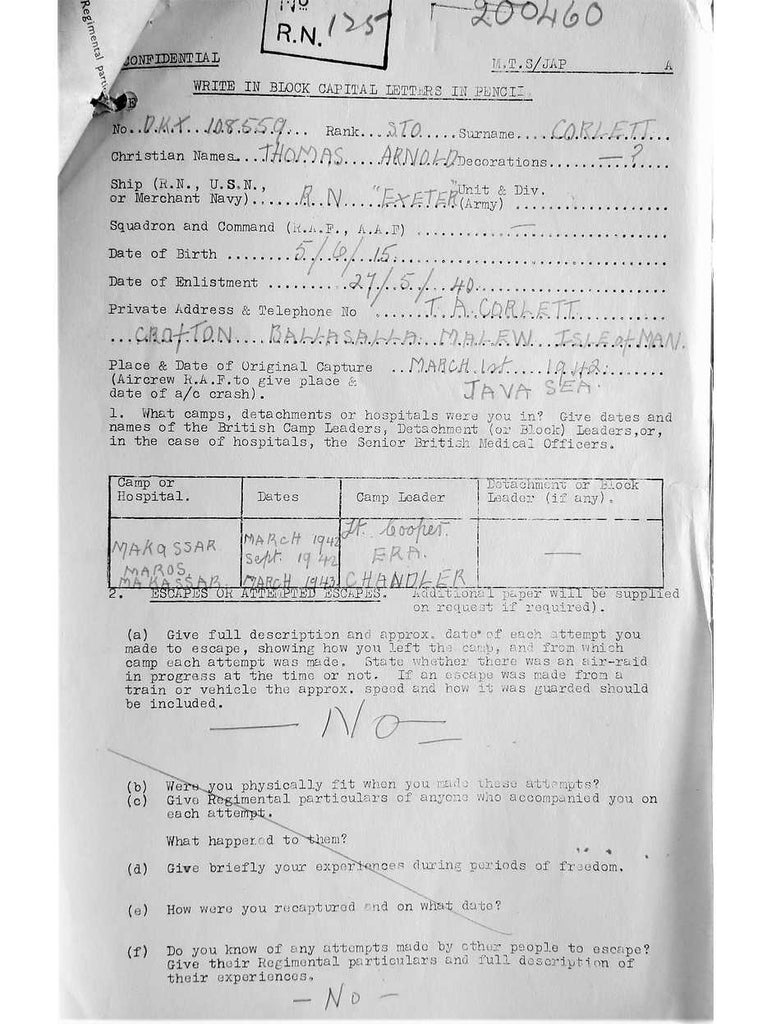 Regimental parti
No
R.N. 125
200460
CONFIDENTIAL M.T.S/JAP A
WRITE IN BLOCK CAPITAL LETTERS IN PENCIL.
No. D.K.X 108559 Rank STO Surname CORLETT
Christian Names THOMAS ARNOLD Decorations — ?
Ship (R.N., U.S.N., or Merchant Navy) R.N "EXETER" Unit & Div. (Army)
Squadron and Command (R.A.F., A.A.F) —
Date of Birth 5/6/15
Date of Enlistment 27/5/40
Private Address & Telephone No T.A. CORLETT
CROfTON BALLASALLA MALEW ISLE of MAN.
Place & Date of Original Capture MARCH 1st 1942
(Aircrew R.A.F. to give place & JAVA SEA.
date of a/c crash).
1. What camps, detachments or hospitals were you in? Give dates and
names of the British Camp Leaders, Detachment (or Block) Leaders, or,
in the case of hospitals, the Senior British Medical Officers.
Camp or Hospital. Dates Camp Leader Detachment or Block Leader (if any).
MAKASSAR MARCH 1942 Lt. Cooper. —
MAROS Sept. 1942 E.R.A.
MAKASSAR MARCH 1943 CHANDLER
2. ESCAPES OR ATTEMPTED ESCAPES. Additional paper will be supplied
on request if required).
(a) Give full description and approx. date of each attempt you
made to escape, showing how you left the camp, and from which
camp each attempt was made. State whether there was an air-raid
in progress at the time or not. If an escape was made from a
train or vehicle the approx. speed and how it was guarded should
be included.
— No —
(b) Were you physically fit when you made these attempts?
(c) Give Regimental particulars of anyone who accompanied you on
each attempt.
What happened to them?
(d) Give briefly your experiences during periods of freedom.
(e) How were you recaptured and on what date?
(f) Do you know of any attempts made by other people to escape?
Give their Regimental particulars and full description of
their experiences.
— No —